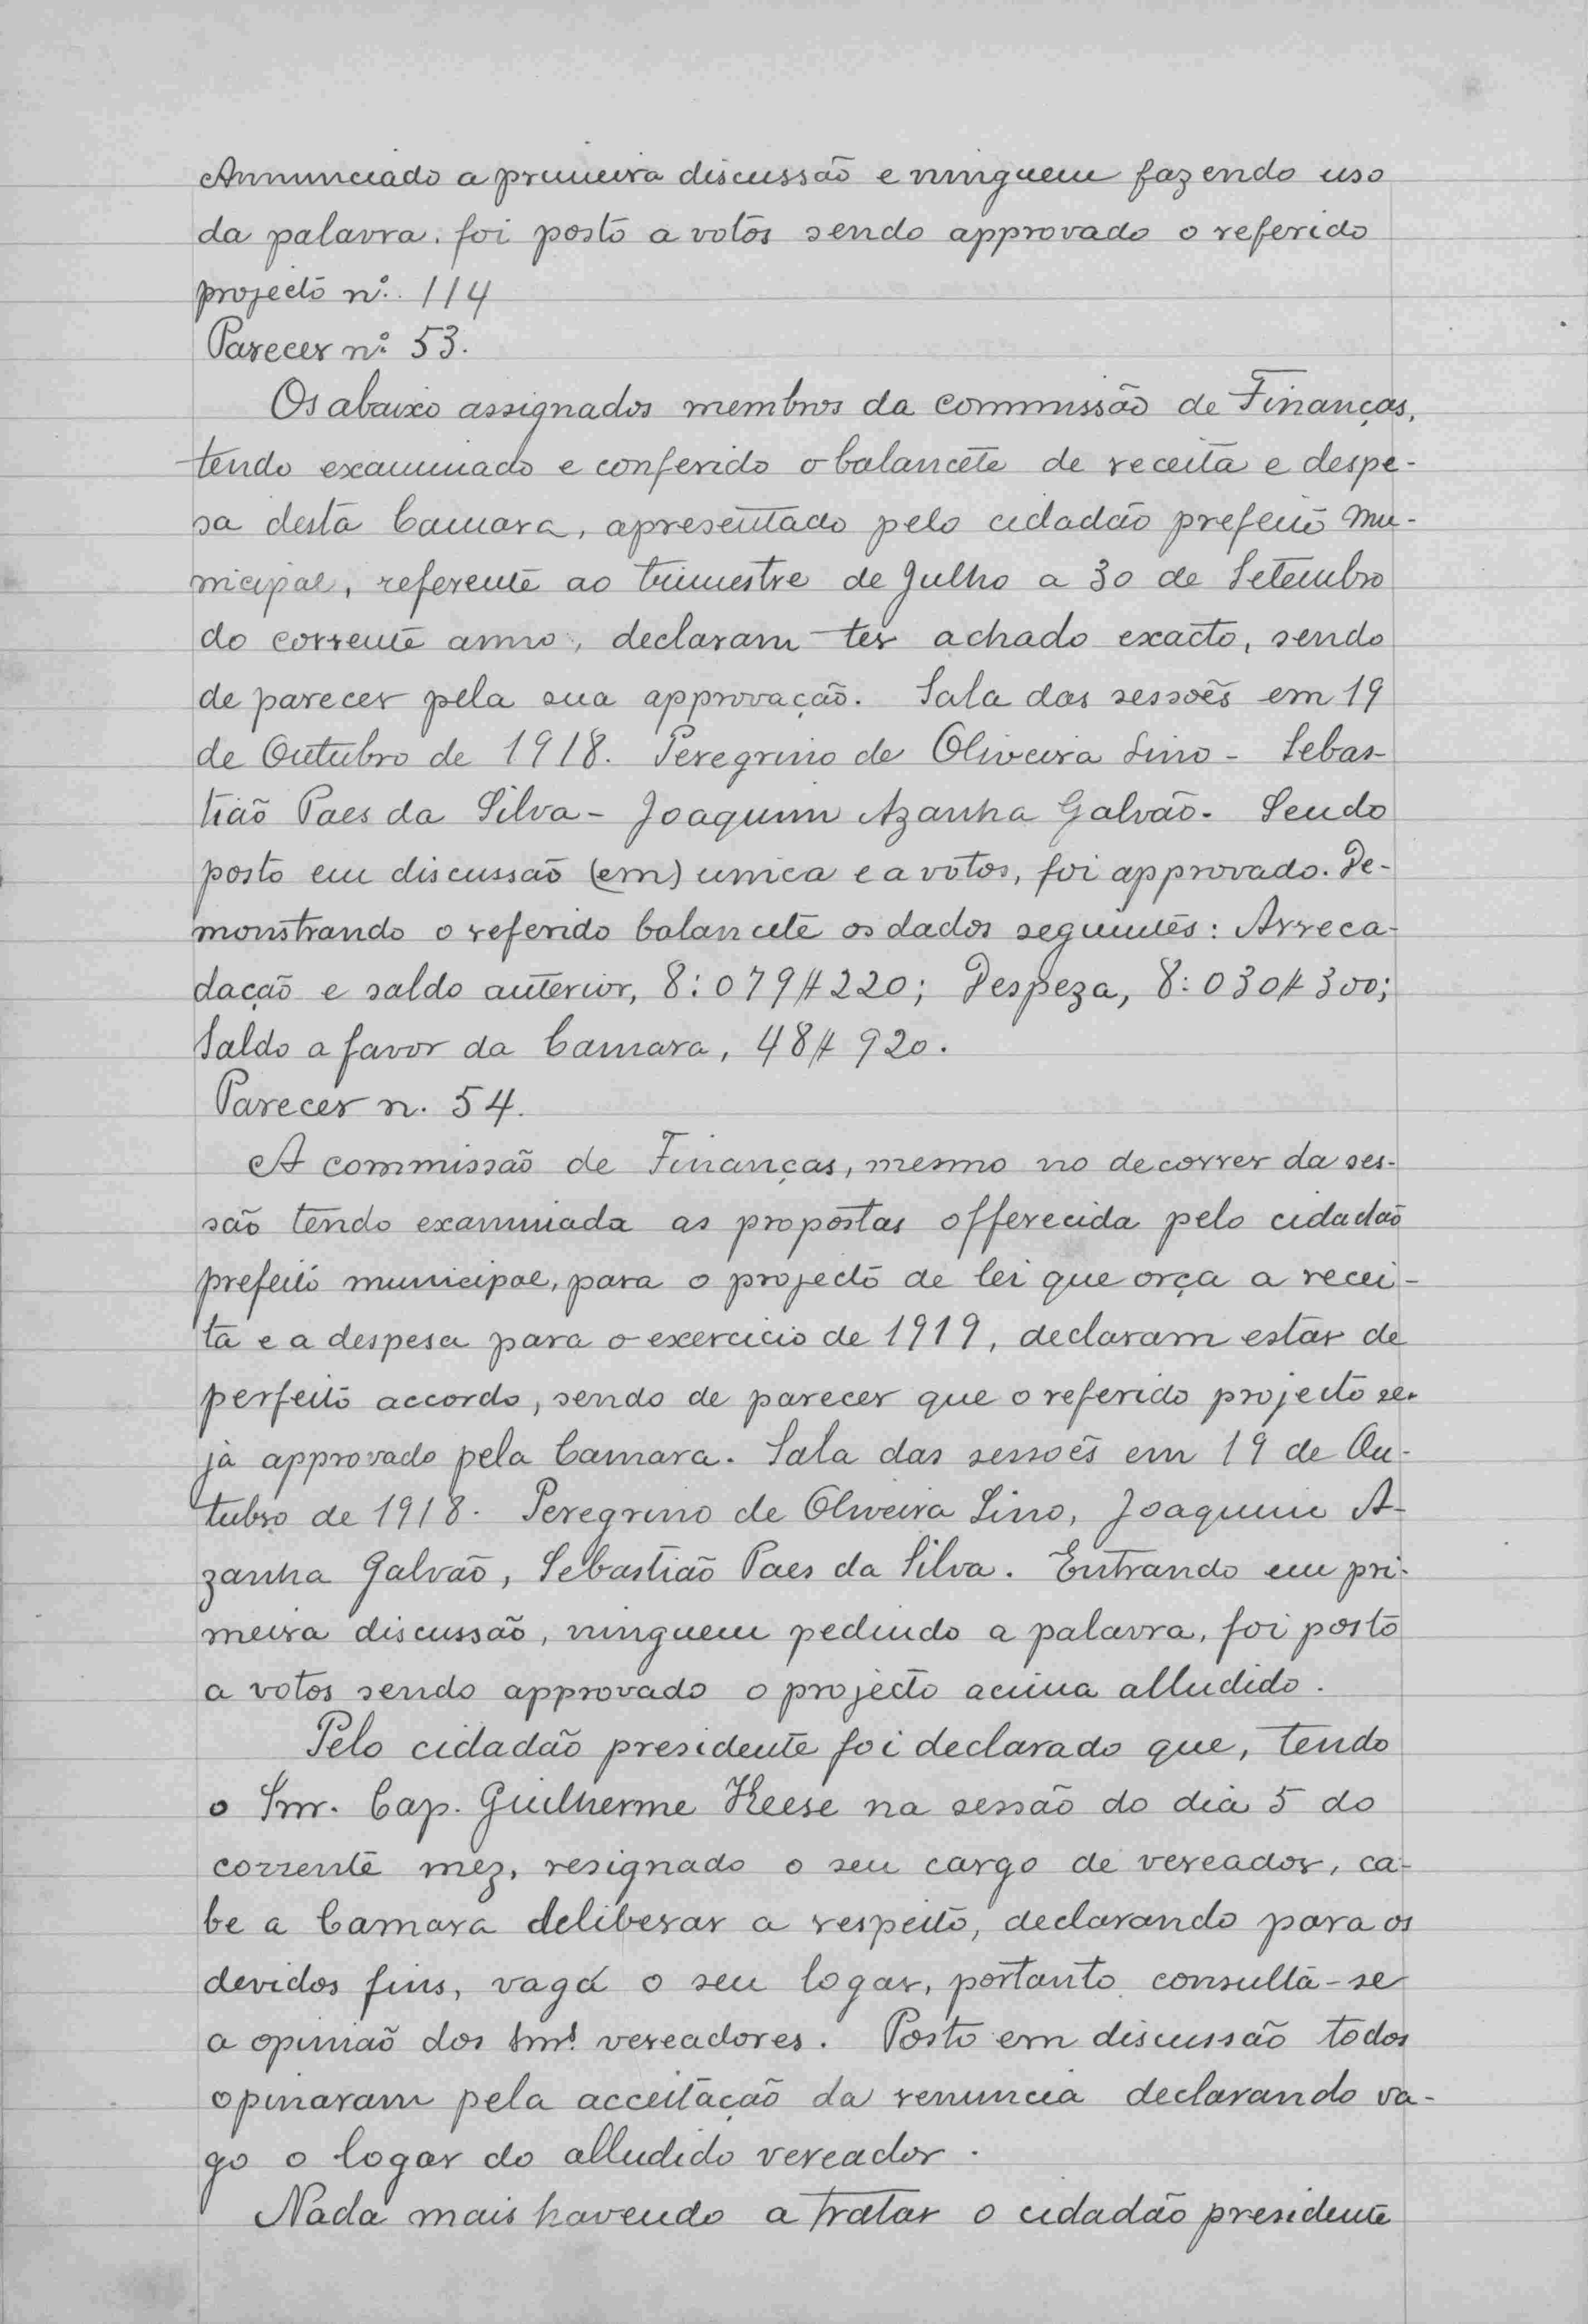 Annunciado a primeira discussão e ninguem fazendo uso
da palavra, foi posto a votos sendo approvado o referido
projecto nº. 114
Parecer nº 53.
Os abaixo assignados membros da commissão de Finanças,
tendo examinado e conferido o balancete de receita e despe-
sa desta Camara, apresentado pelo cidadão prefeito Mu-
nicipal, referente ao trimestre de Julho a 30 de Setembro
do corrente anno, declaram ter achado exacto, sendo
de parecer pela sua approvação. Sala das sessões em 19
de Outubro de 1918. Peregrino de Oliveira Lino - Sebas-
tião Paes da Silva - Joaquim Azanha Galvão. Sendo
posto em discussão (em) unica e a votos, foi approvado. De-
monstrando o referido balancete os dados seguintes: Arreca-
dação e saldo anterior, 8:079$220; Despeza, 8:030$300;
Saldo a favor da Camara, 48$920.
Parecer n. 54.
A commissão de Finanças, mesmo no decorrer da ses-
são tendo examinada as propostas offerecida pelo cidadão
prefeito municipal, para o projecto de lei que orça a recei-
ta e a despesa para o exercicio de 1919, declaram estar de
perfeito accordo, sendo de parecer que o referido projecto se-
ja approvado pela Camara. Sala das sessões em 19 de Ou-
tubro de 1918. Peregrino de Oliveira Lino, Joaquim A-
zanha Galvão, Sebastião Paes da Silva. Entrando em pri-
meira discussão, ninguem pedindo a palavra, foi posto
a votos sendo approvado o projecto acima alludido.
Pelo cidadão presidente foi declarado que, tendo
o Snr. Cap. Guilherme Keese na sessão do dia 5 do
corrente mez, resignado o seu cargo de vereador, ca-
be a Camara deliberar a respeito, declarando para os
devidos fins, vaga o seu logar, portanto consulta-se
a opinião dos Snrs vereadores. Posto em discussão todos
opinaram pela acceitação da renuncia declarando va-
go o logar do alludido vereador.
Nada mais havendo a tratar o cidadão presidente